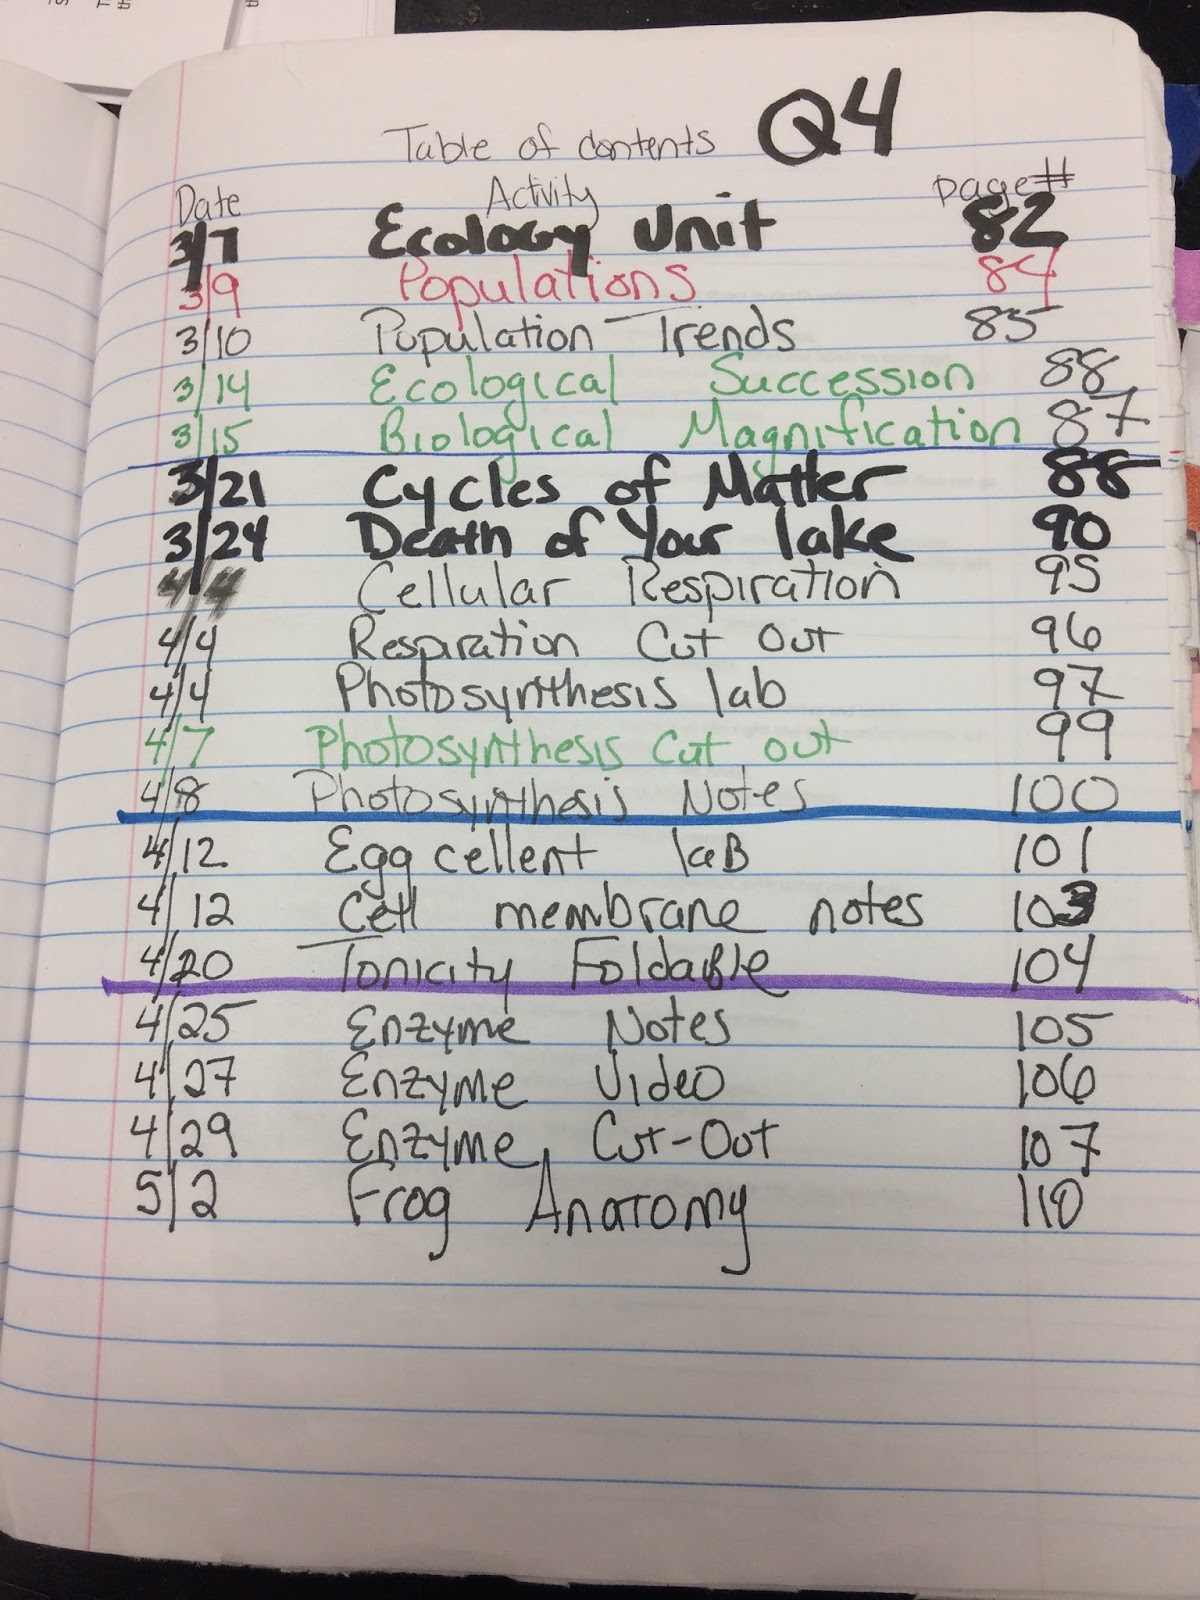 Table of contents Q4
Date Activity page #
3/7 Ecology Unit 82
3/9 Populations 84
3/10 Population Trends 85
3/14 Ecological Succession 88
3/15 Biological Magnification 87
3/21 Cycles of Matter 88
3/24 Death of Your lake 90
4/4 Cellular Respiration 95
4/4 Respiration Cut Out 96
4/4 Photosynthesis lab 97
4/7 Photosynthesis Cut out 99
4/8 Photosynthesis Notes 100
4/12 Egg cellent laB 101
4/12 Cell membrane notes 103
4/20 Tonicity Foldable 104
4/25 Enzyme Notes 105
4/27 Enzyme Video 106
4/29 Enzyme Cut-Out 107
5/2 Frog Anatomy 110